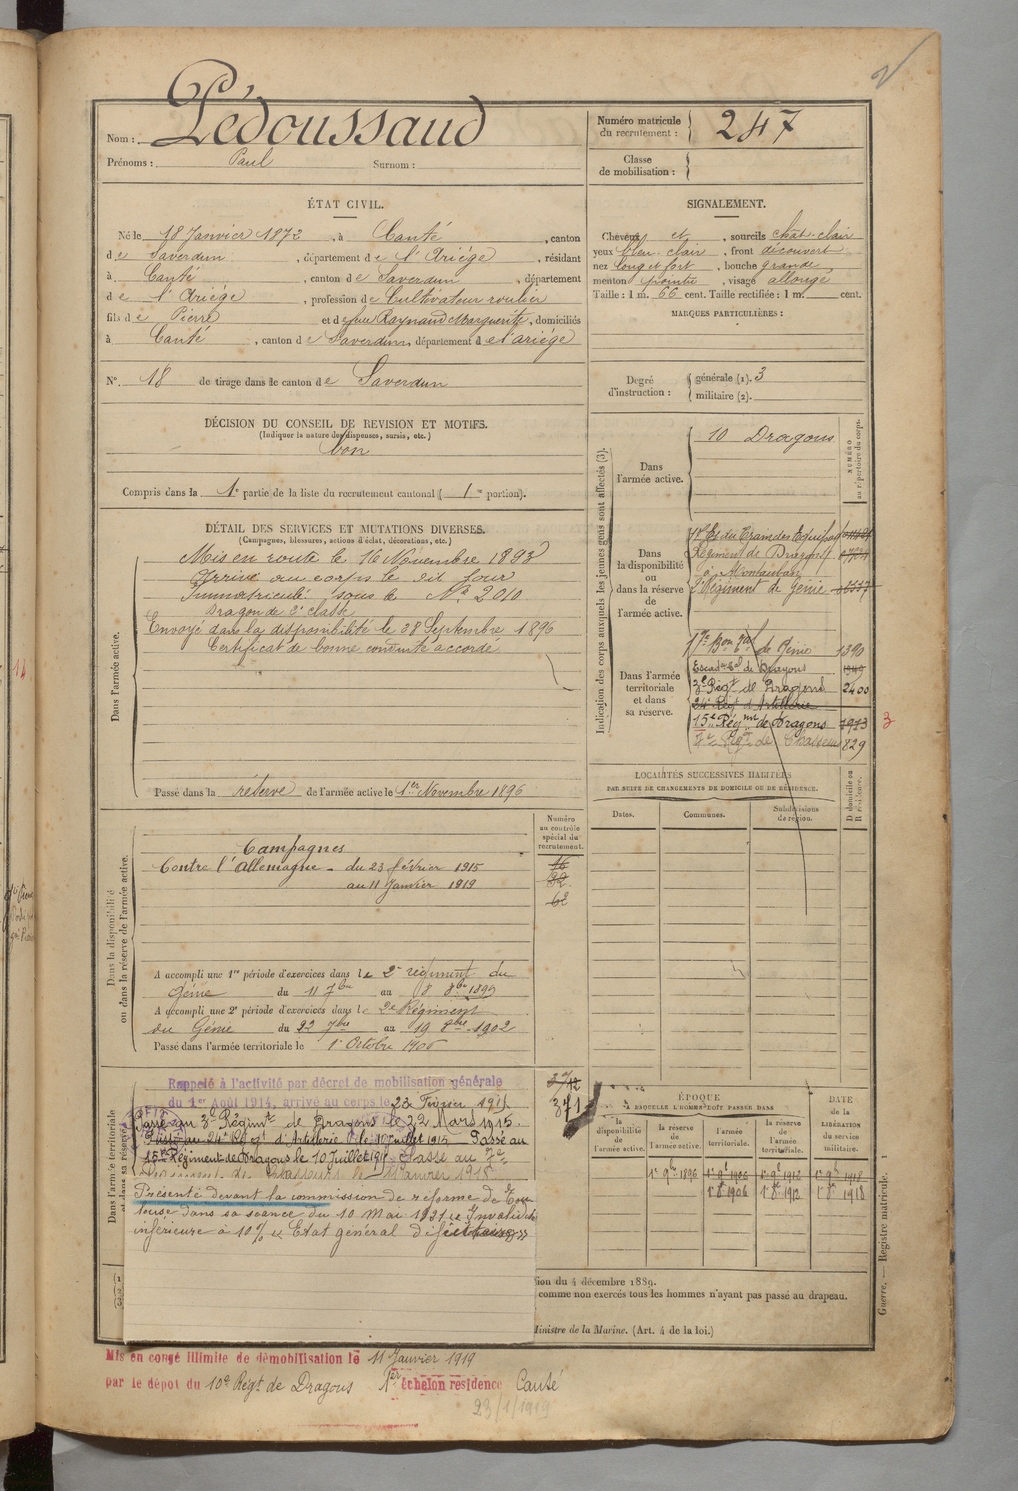 Nom : Pédoussaud
Prénoms : Paul Surnom :
Numéro matricule du recrutement : 247
Classe de mobilisation :
ÉTAT CIVIL.
Né le 18 Janvier 1872, à Canté, canton
de Saverdun, département de l'Ariége, résidant
à Canté, canton de Saverdun, département
de l'Ariége, profession de Cultivateur roulier
fils de Pierre et de feue Raynaud Marguerite, domiciliés
à Canté, canton de Saverdun, département de l'ariége
N° 18 de tirage dans le canton de Saverdun
SIGNALEMENT.
Cheveux et, sourcils chât-clair
yeux bleu clair, front découvert
nez long et fort, bouche grande
menton pointu, visage allongé
Taille : 1 m. 66 cent. Taille rectifiée : 1 m. cent.
MARQUES PARTICULIÈRES :
Degré d'instruction : générale (1). 3
militaire (2).
DÉCISION DU CONSEIL DE REVISION ET MOTIFS.
(Indiquer la nature des dispenses, sursis, etc.)
bon
Compris dans la 1e partie de la liste du recrutement cantonal (1re portion).
DÉTAIL DES SERVICES ET MUTATIONS DIVERSES.
(Campagnes, blessures, actions d'éclat, décorations, etc.)
Dans l'armée active.
Mis en route le 16 Novembre 1893
Arrivé au corps le dit jour
Immatriculé sous le N° 2010
Dragon de 2e classe
Envoyé dans la disponibilité le 28 Septembre 1896
Certificat de bonne conduite accordé
Passé dans la réserve de l'armée active le 1er Novembre 1896
Indication des corps auxquels les jeunes gens sont affectés (3).
NUMÉRO au répertoire du corps.
Dans l'armée active.
10 Dragons
Dans la disponibilité ou dans la réserve de l'armée active.
17e Es du Train des Equipag
Régiment de Dragons
à Montauban
2e Régiment de Génie
Dans l'armée territoriale et dans sa réserve.
17e Bon Gal de Génie 1390
Escadon Cal de Dragons
3e Régt de Dragons 2400
24e Régt d'Artillerie
15e Régmt de Dragons 1913
7e Régt de Chasseurs 829
3
LOCALITÉS SUCCESSIVES HABITÉES
PAR SUITE DE CHANGEMENTS DE DOMICILE OU DE RÉSIDENCE.
Dates. Communes. Subdivisions de région. D domicile ou R résidence.
Dans la disponibilité ou dans la réserve de l'armée active.
Numéro au contrôle spécial du recrutement.
16
32
62
Campagnes
Contre l'Allemagne - du 23 février 1915
au 11 Janvier 1919
A accompli une 1re période d'exercices dans le 2e régiment du
Génie du 11 7bre au 8 8bre 1899
A accompli une 2e période d'exercices dans le 2e Régiment
du Génie du 22 7bre au 19 8bre 1902
Passé dans l'armée territoriale le 1er Octobre 1906
Dans l'armée territoriale et dans sa réserve
Rappelé à l'activité par décret de mobilisation générale
du 1er Août 1914, arrivé au corps le 23 Février 1915
Passé au 3e Régimt de Dragons le 22 Mars 1915.
Passé au 24e Régt d'Artillerie le 10 juillet 1915 Passé au
15e Régiment de Dragons le 10 Juillet 1917 Classe au 7e
Régiment de Chasseurs le 1 Janvier 1918
Présenté devant la commission de réforme de Toulouse
dans sa séance du 10 Mai 1931 « Invalidité
inférieure à 10% « Etat général déficitaire »»
371
ÉPOQUE
A LAQUELLE L'HOMME DOIT PASSER DANS
la disponibilité de l'armée active. la réserve de l'armée active. l'armée territoriale. la réserve de l'armée territoriale. DATE de la LIBÉRATION du service militaire.
1er 9bre 1896 1er 9b 1906 1er 9b 1912 1er 9b 1918
1er 8b 1906 1er 8b 1912 1er 8b 1918
sion du 4 décembre 1889.
comme non exercés tous les hommes n'ayant pas passé au drapeau.
Ministre de la Marine. (Art. 4 de la loi.)
Guerre. — Registre matricule. 1
Mis en congé illimité de démobilisation le 11 Janvier 1919
par le dépot du 10e Régt de Dragons 1er échelon résidence Canté
23/1/1919